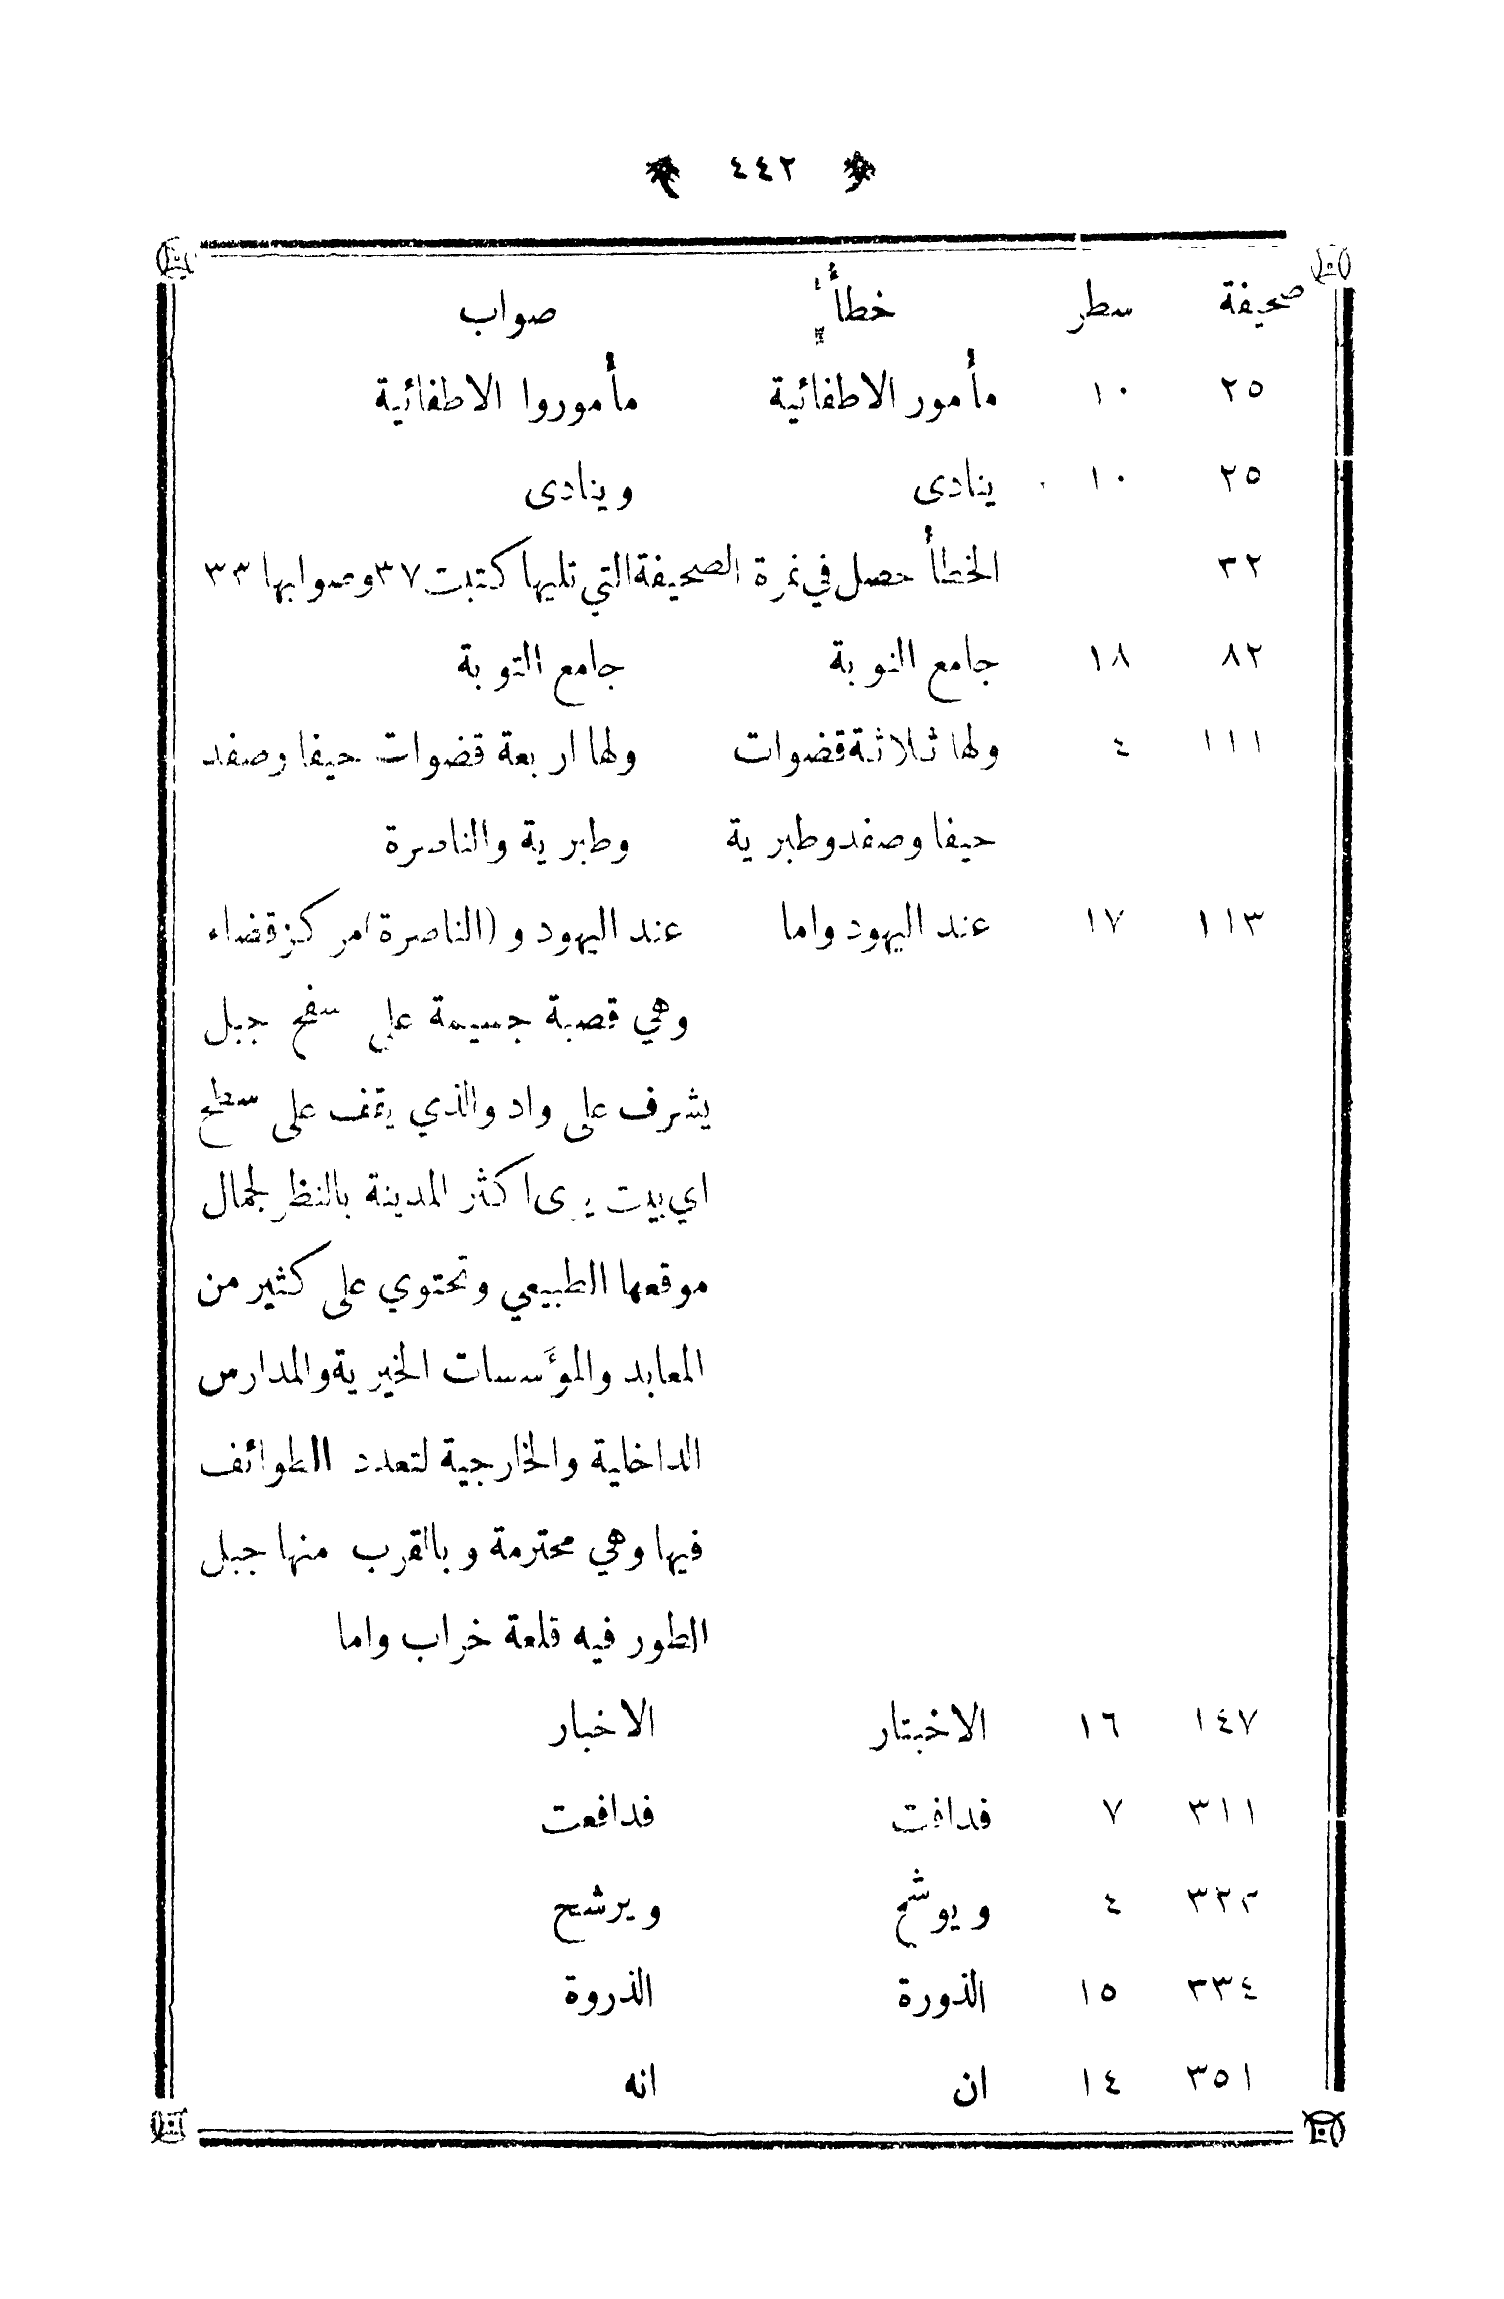 ٤٤٢
صحيفة سطر خطأ صواب
٢٥ ١٠ مأمور الاطفائية مأموروا الاطفائية
٢٥ ١٠ ينادى وينادى
٣٢ الخطأ حصل في نمرة الصحيفة التي تليها كتبت ٣٧ وصوابها ٣٣
٨٢ ١٨ جامع النوبة جامع التوبة
١١١ ٤ ولها ثلاثة قضوات ولها اربعة قضوات حيفا وصفد
حيفا وصفد وطبرية وطبرية والناصرة
١١٣ ١٧ عند اليهود واما عند اليهود و (الناصرة) مركز قضاء
وهي قصبة جسيمة على سفح جبل
يشرف على واد والذي يقف على سطح
اي بيت يرى اكثر المدينة بالنظر لجمال
موقعها الطبيعي وتحتوي على كثير من
المعابد والمؤَسسات الخيرية والمدارس
الداخلية والخارجية لتعدد الطوائف
فيها وهي محترمة وبالقرب منها جبل
الطور فيه قلعة خراب واما
١٤٧ ١٦ الاخبتار الاخبار
٣١١ ٧ فدافت فدافعت
٤ ويوشح ويرشح
٣٣٤ ١٥ الذورة الذروة
٣٥١ ١٤ ان انه